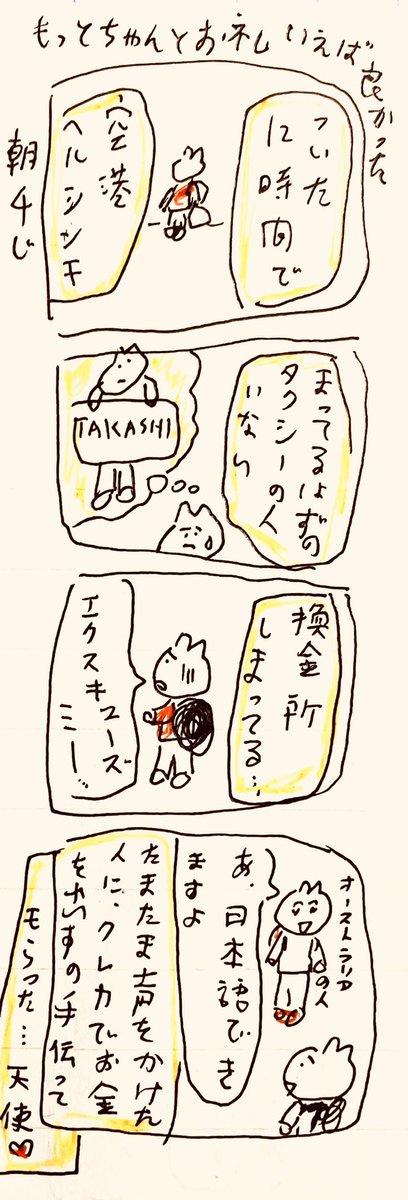 もっとちゃんとお礼いえば良かった
ついた
12時間で
空港
ヘルシンキ
朝4じ
まってるはずの
タクシーの人
いない
TAKASHI
換金所
しまってる…
エクスキューズ
ミー…
オーストラリア
の人
あ、日本語でき
ますよ
たまたま声をかけた
人に、クレカでお金
をおろすの手伝って
もらった…天使♡